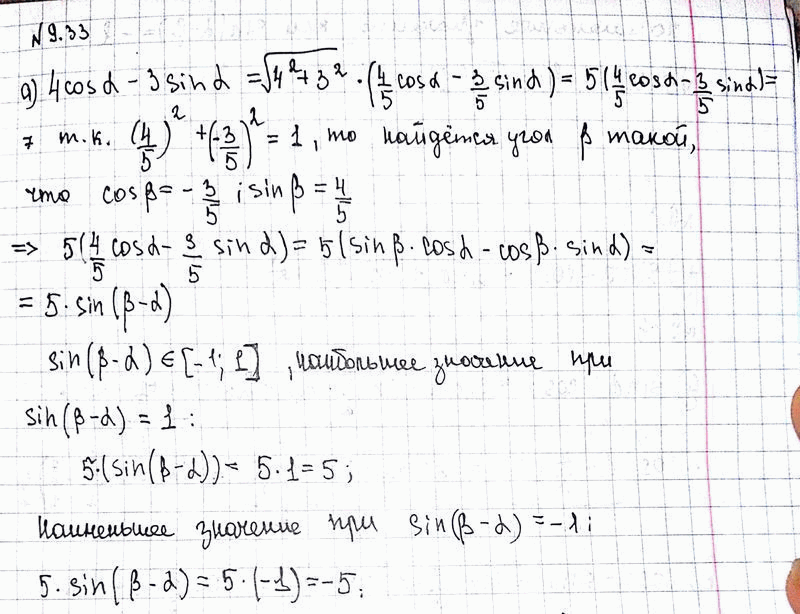 №9.33
а) 4cosα - 3sinα = √4²+3² · (4/5 cosα - 3/5 sinα) = 5(4/5 cosα - 3/5 sinα) =
т.к. (4/5)² + (-3/5)² = 1, то найдётся угол β такой,
что cosβ = - 3/5 ; sinβ = 4/5
=> 5(4/5 cosα - 3/5 sinα) = 5(sinβ · cosα - cosβ · sinα) =
= 5 · sin(β-α)
sin(β-α) ∈ [-1; 1] , наибольшее значение при
sin(β-α) = 1 :
5·(sin(β-α)) = 5·1 = 5 ;
Наименьшее значение при sin(β-α) = -1 ;
5 · sin(β-α) = 5 · (-1) = -5 ;